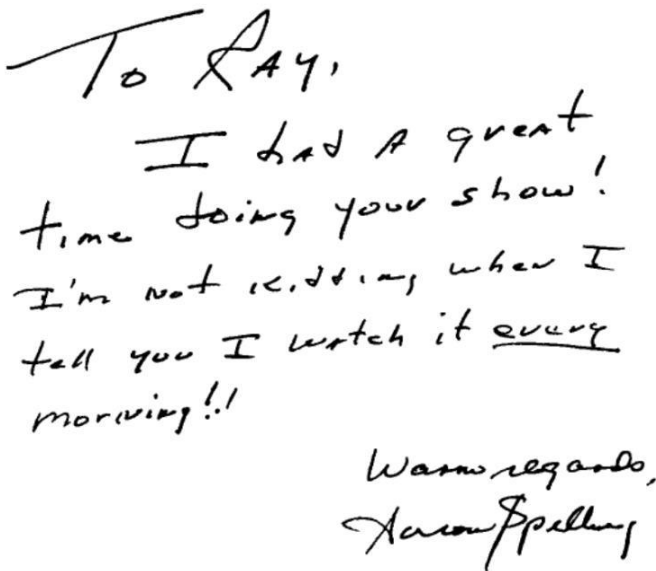 To Ray,
I had a great
time doing your show!
I'm not kidding when I
tell you I watch it every
morning!!
Warm regards,
Aaron Spelling